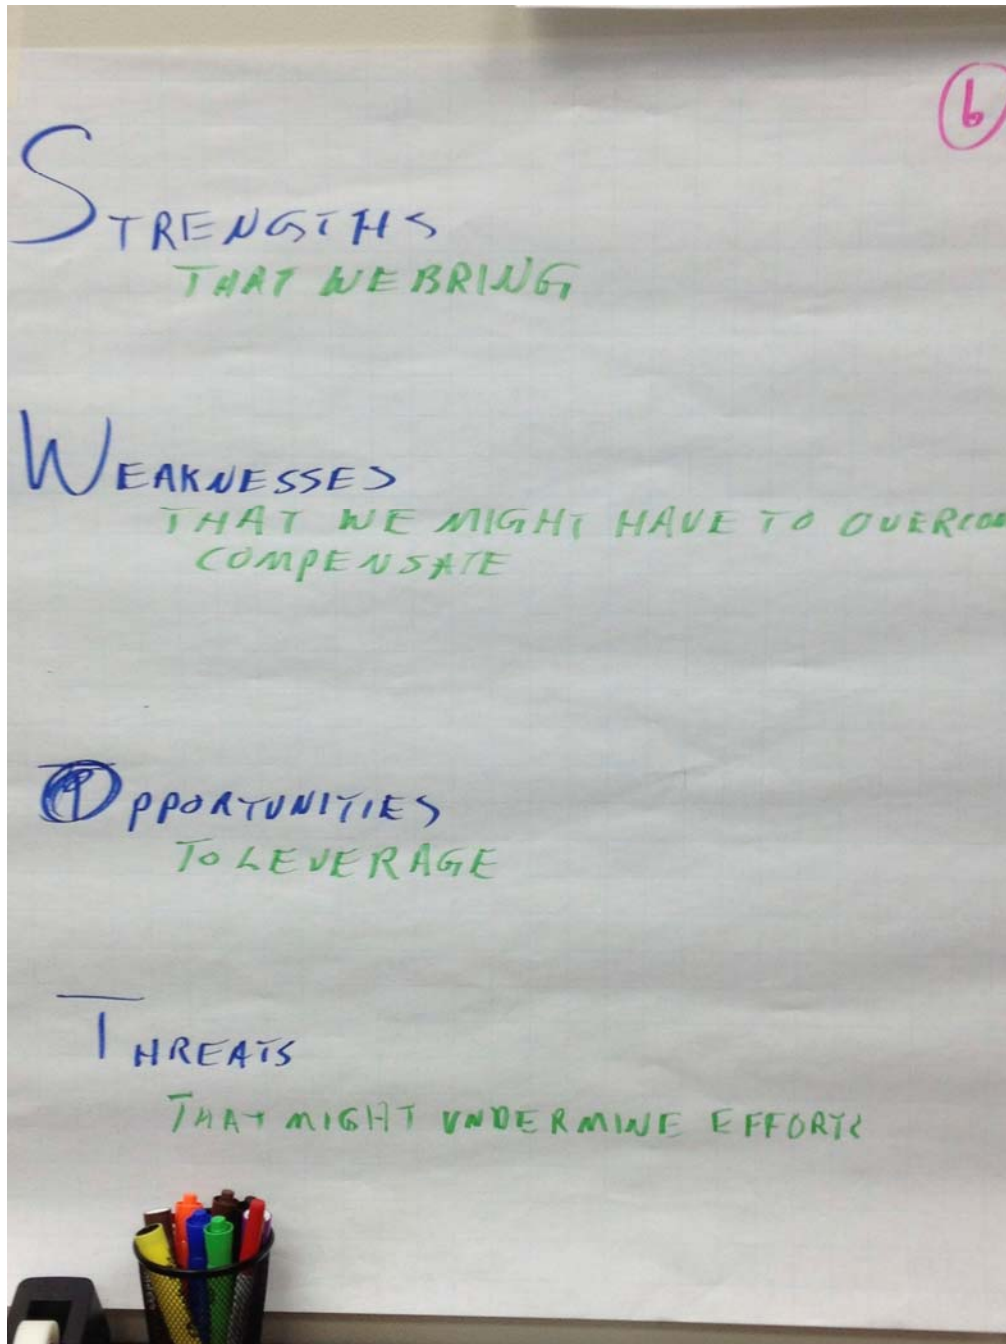 6
STRENGTHS
THAT WE BRING
WEAKNESSES
THAT WE MIGHT HAVE TO
COMPENSATE
OPPORTUNITIES
TO LEVERAGE
THREATS
THAT MIGHT UNDERMINE EFFORTS